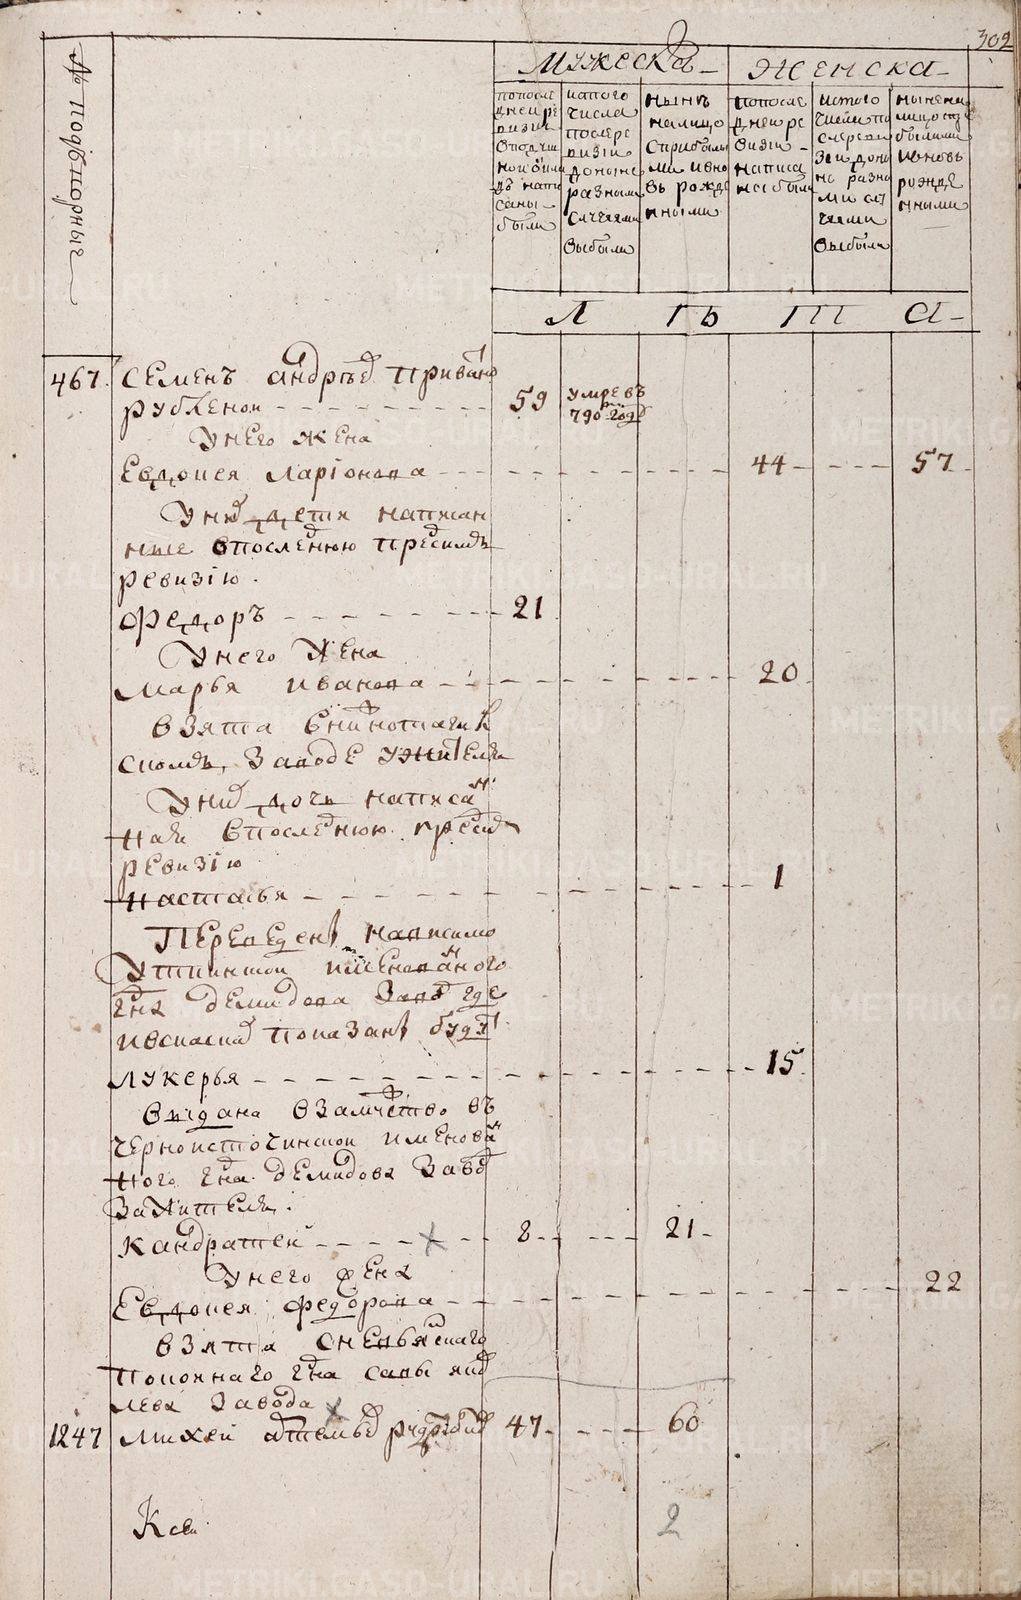 302
№ Подворныя
Мужеска
Женска
попосле
дней ре
визи
написаны
были
истого
числа
после ре
визiи
доныне
разными
случаями
выбыли
нынъ
налицо
сприбылы
ми ивно
въ рожде
нными
попосле
дней ре
визiи
написа
ны были
истого
числа по
ле ре
зiи доны
не разны
ми слу
чаями
выбыли
ныне на
лицо спри
былыми
ивновь
рожде
нными
Л Ѣ Т А
467. Семенъ андрѣев приван
рубленой 59 умре въ 790 годъ
Унего жена
Евдокея Ларiонова 44 57
Уних дети написан
ные впоследнюю предсимъ
ревизiю.
Федоръ 21
Унего Жена
марья иванова 20
взята внижнотагил
скомъ Заводе ужителя
Уних дочь написан
ная впоследнюю предсим
ревизiю
настасья 1
Переведены написмо
Уткинской именованного
гна демидова Завод где
ивсказках показаны будут
лукерья 15
выдана взамужество въ
черноисточинской именован
ного гна демидова Завод
Зажителя.
Кандратей 8 21
Унего жена
Евдокея федорова 22
взята сневьянскаго
покойнаго гна савы яков
лева Завода
1247 михей артемьев 47 60
2